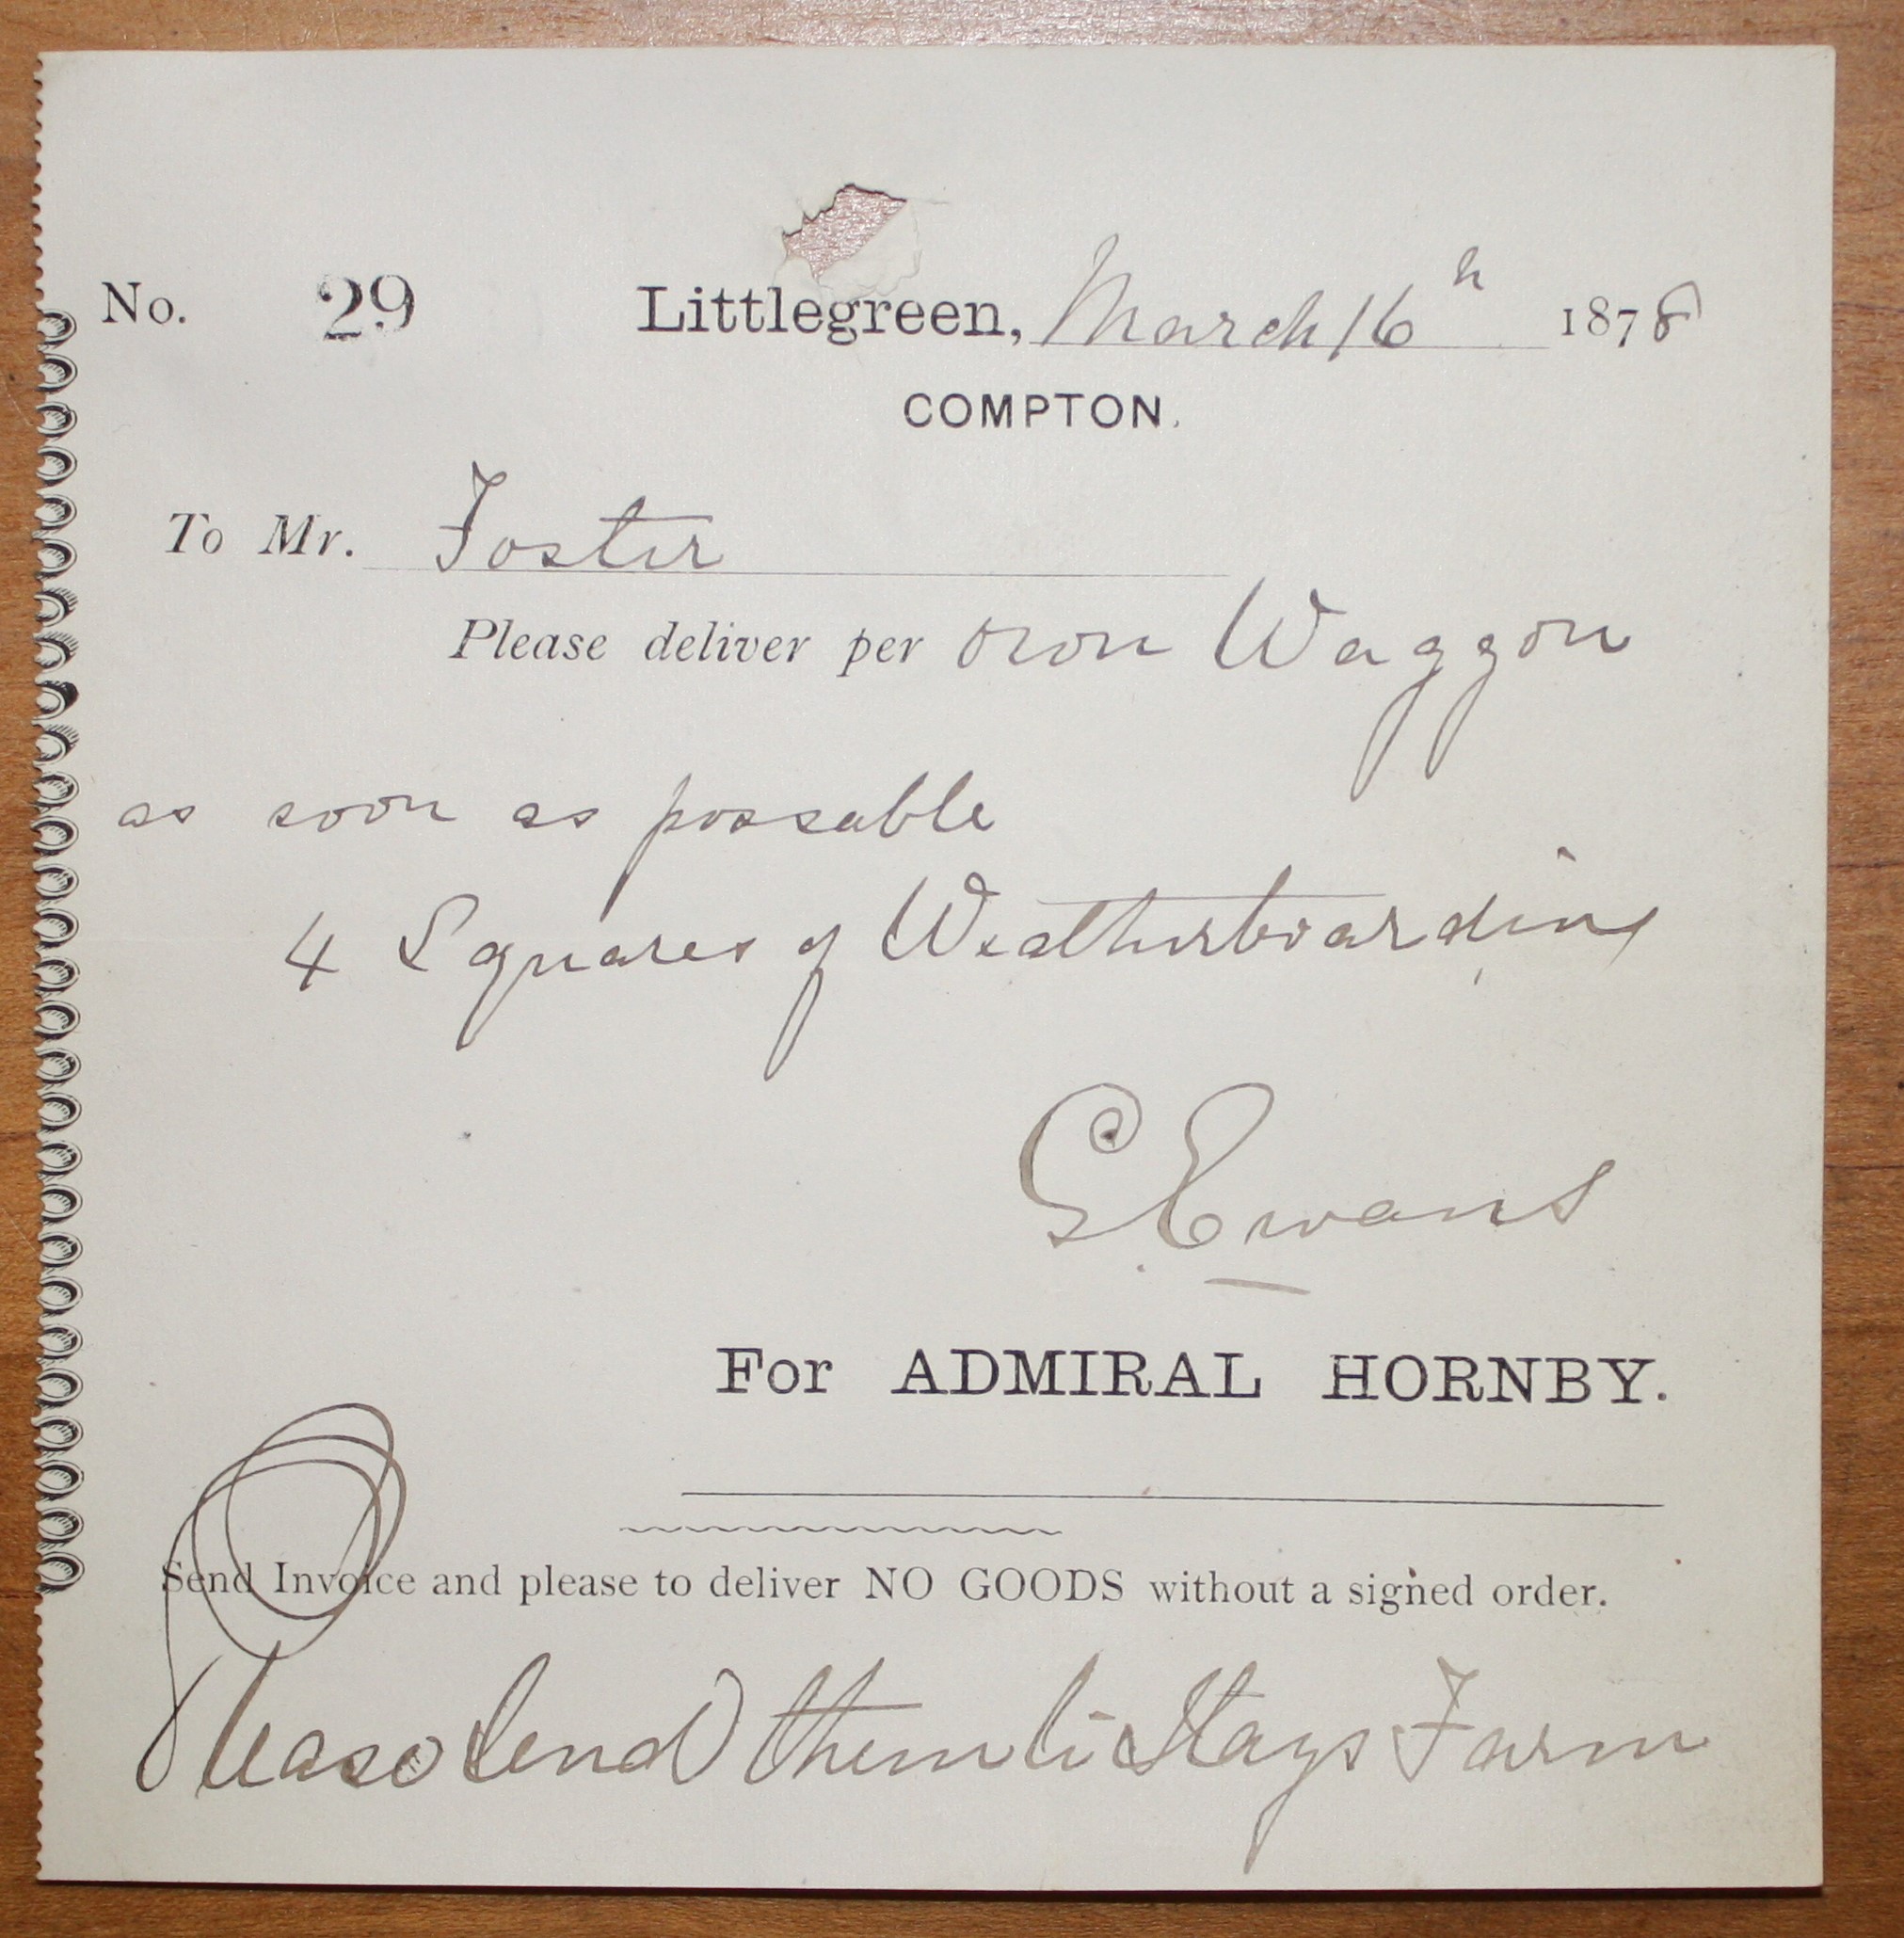 No. 29 Littlegreen, March 16h 1878
COMPTON.
To Mr. Foster
Please deliver per own Waggon
as soon as possable
4 Squares of Weatherboarding
G Ewans
For ADMIRAL HORNBY.
Send Invoice and please to deliver NO GOODS without a signed order.
Please Send them to Stays Farm